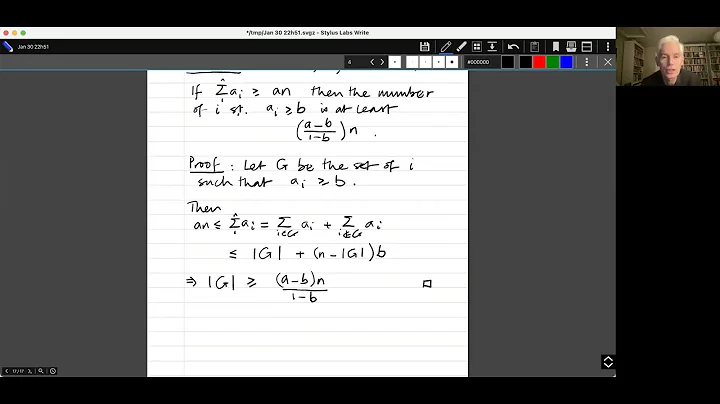 */tmp/Jan 30 22h51.svgz - Stylus Labs Write
Jan 30 22h51
4
#000000
If Σⁿ aᵢ ≥ an then the number
of i s.t. aᵢ ≥ b is at least
((a-b)/(1-b)) n .
Proof : Let G be the set of i
such that aᵢ ≥ b .
Then
an ≤ Σⁿᵢ aᵢ = Σ_{i∈G} aᵢ + Σ_{i∉G} aᵢ
≤ |G| + (n - |G|) b
⇒ |G| ≥ (a-b)n/(1-b) □
17/17